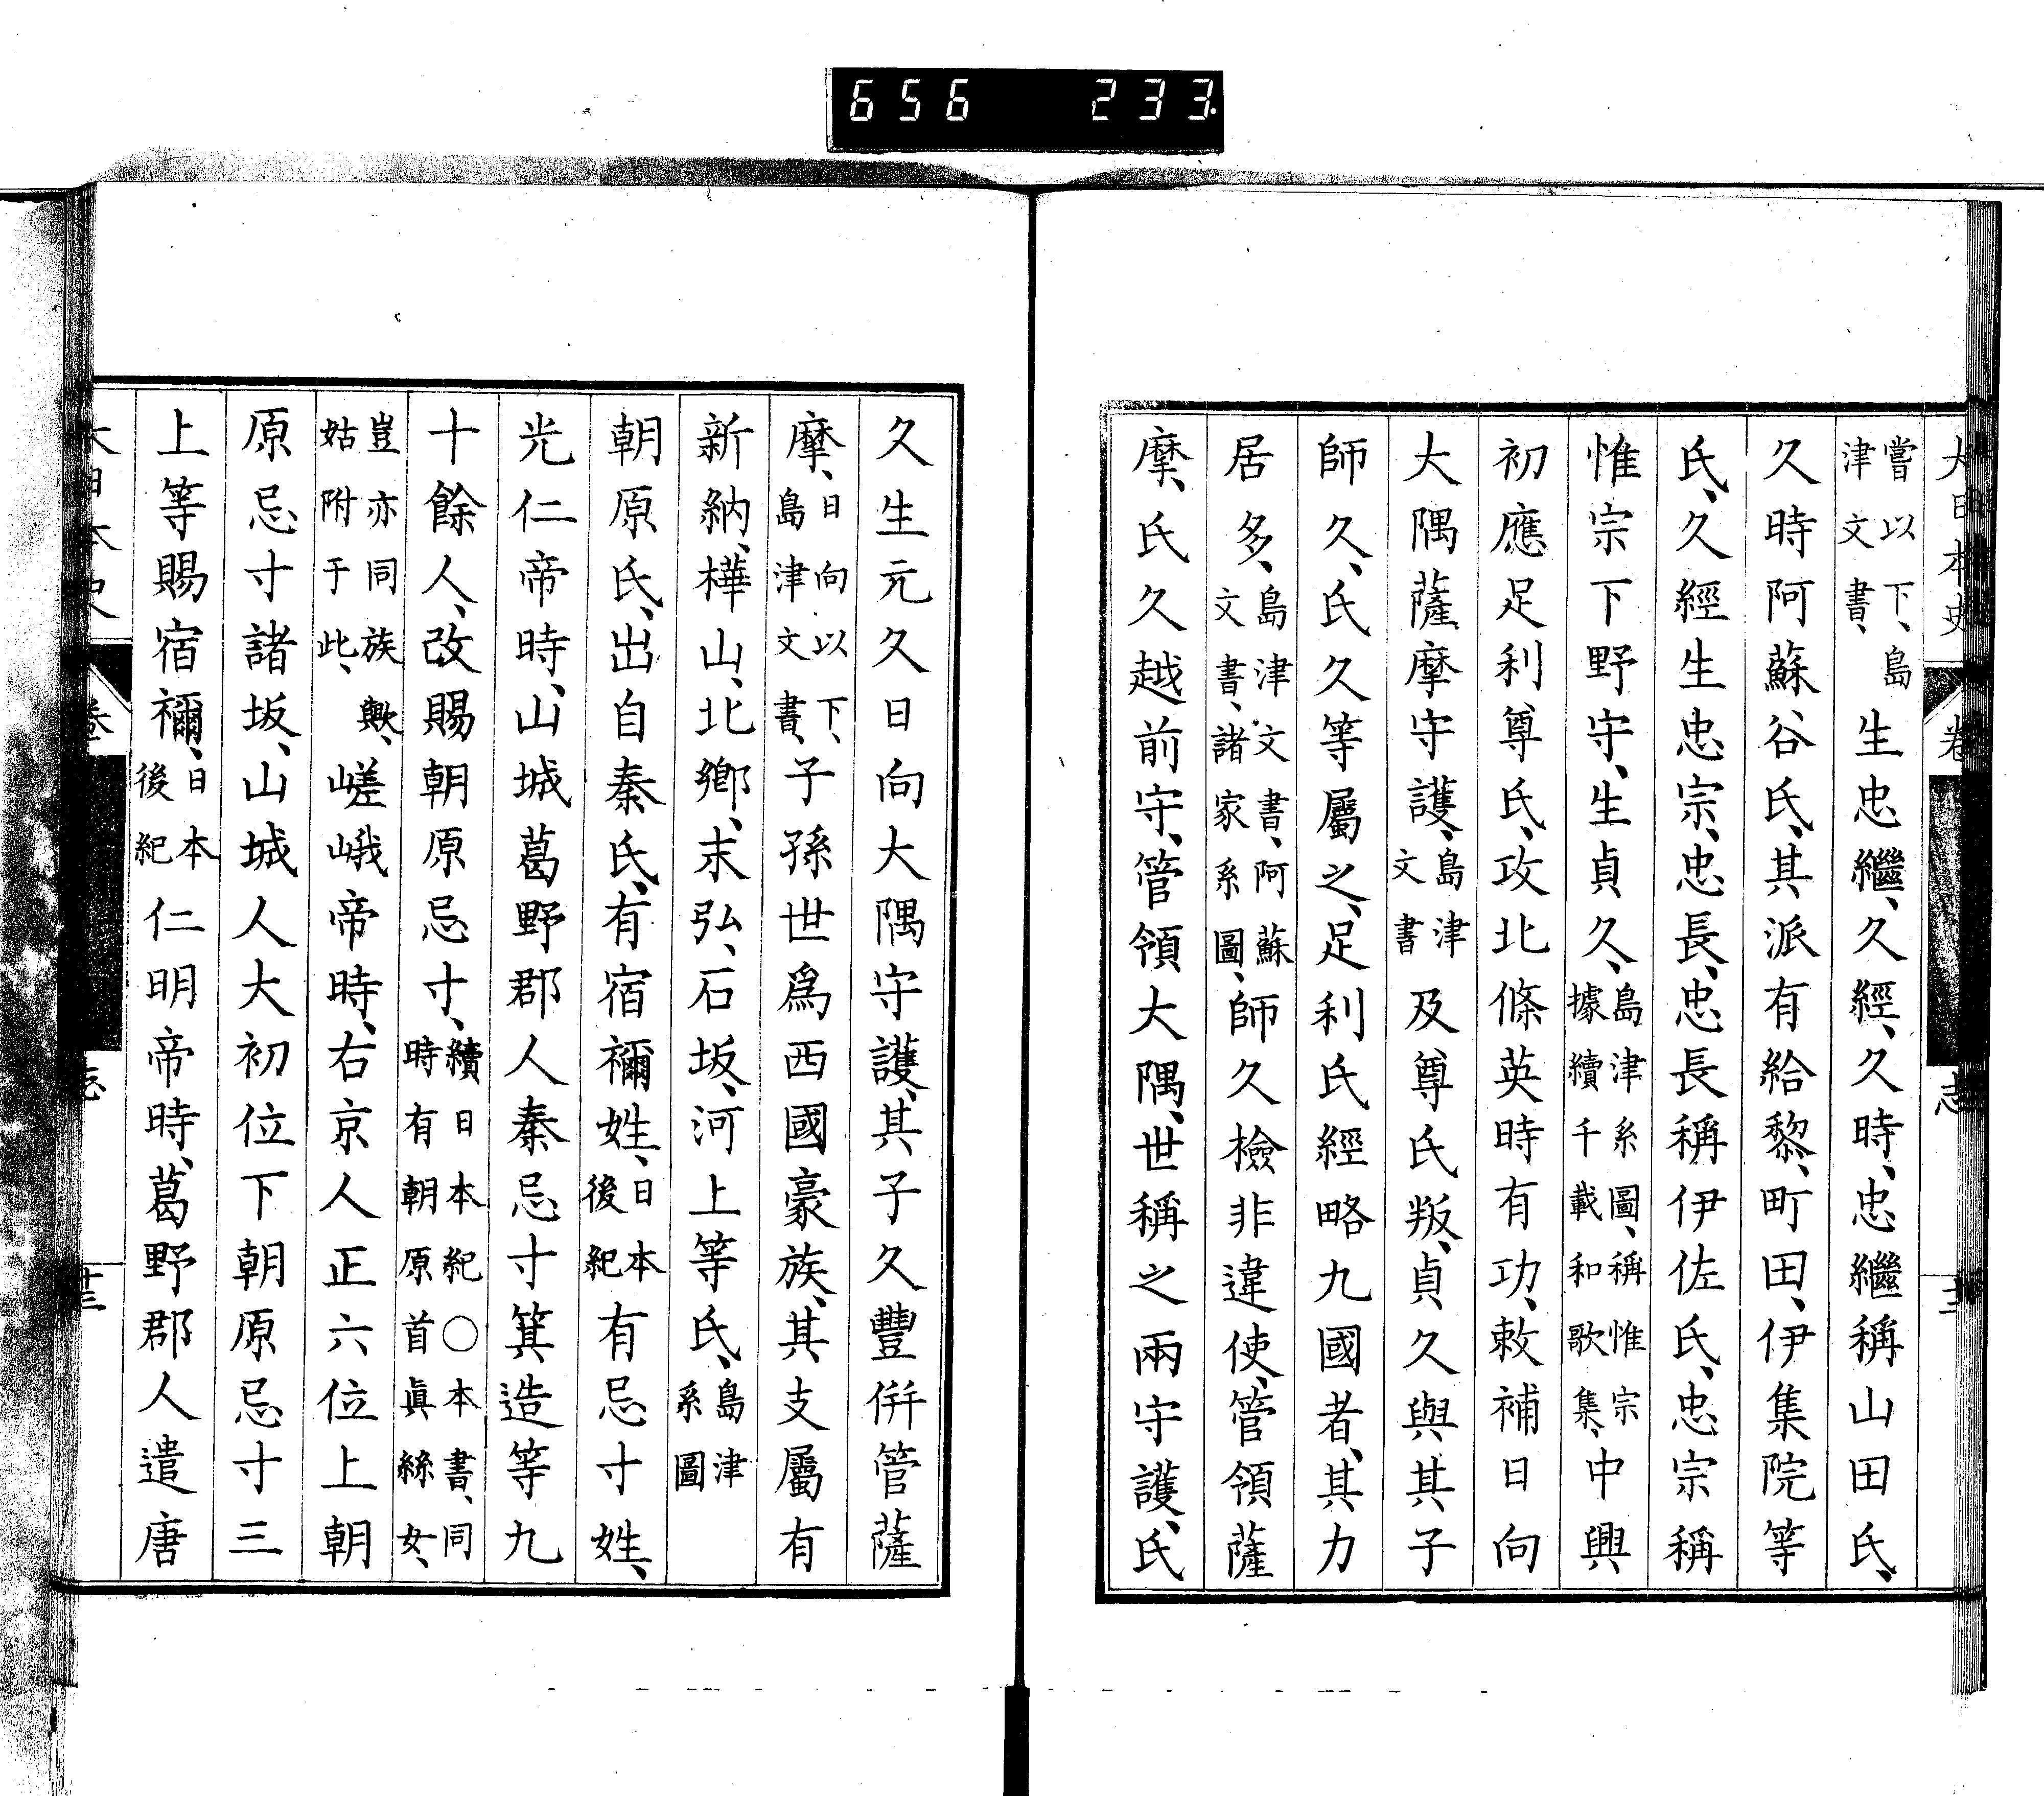 656 233.
大日本史 卷 志 十三
嘗以下、島津文書、生忠繼、久經、久時、忠繼稱山田氏、
久時阿蘇谷氏、其派有給黎、町田、伊集院等
氏、久經生忠宗、忠長、忠長稱伊佐氏、忠宗稱
惟宗下野守、生貞久、島津系圖、稱惟宗據續千載和歌集、中興
初應足利尊氏、攻北條英時有功、敕補日向
大隅薩摩守護、島津文書及尊氏叛、貞久與其子
師久、氏久等屬之、足利氏經略九國者、其力
居多、島津文書、阿蘇文書、諸家系圖、師久檢非違使、管領薩
摩、氏久越前守、管領大隅、世稱之兩守護、氏
久生元久日向大隅守護、其子久豐倂管薩
摩、日向以下、島津文書、子孫世爲西國豪族、其支屬有
新納、樺山、北鄕、末弘、石坂、河上等氏、島津系圖
朝原氏、出自秦氏、有宿禰姓、日本後紀有忌寸姓、
光仁帝時、山城葛野郡人秦忌寸箕造等九
十餘人、改賜朝原忌寸、續日本紀○本書、同時有朝原首眞絲女、
豈亦同族歟、姑附于此、嵯峨帝時、右京人正六位上朝
原忌寸諸坂、山城人大初位下朝原忌寸三
上等賜宿禰、日本後紀仁明帝時、葛野郡人遣唐
大日本史 卷 志 十三